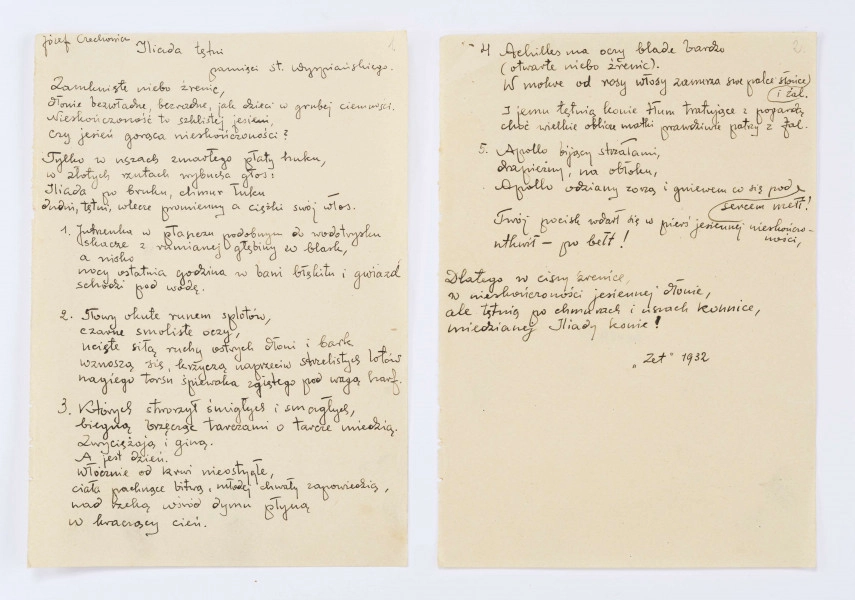 Józef Czechowicz
Iliada tętni
pamięci St. Wyspiańskiego.
Zamknięte niebo źrenic,
dłonie bezwładne, bezradne, jak dzieci w grubej ciemności.
Nieskończoność to szklistej jesieni,
czy jesień gorąca nieskończoności?
Tylko w uszach zmarłego płaty huku,
w złotych rzutach wybucha głos:
Iliada po bruku, chmur łuku
dudni, tętni, wlecze promienny a ciężki swój włos.
1. Jutrzenka w płaszczu podobnym do wodotrysku
skacze z rumianej głębiny w blask,
a nisko
nocy ostatnia godzina w bani błękitu i gwiazd
schodzi pod wodę.
2. Głowy okute runem splotów,
czarne smoliste oczy,
ucięte siłą ruchy ostrych dłoni i bark
wznoszą się, krzyczą naprzeciw strzelistych lotów
nagiego torsu śpiewaka zgiętego pod wagą harf.
3. Których stworzył śmigłych i smagłych,
biegną brzęcząc tarczami o tarcze miedzią.
Zwyciężają i giną.
A jest dzień.
Włócznie od krwi nieostygłe,
ciała pachnące bitwą, młodej chwały zapowiedzią,
nad rzeką wśród dymu płyną
w kraczący cień.
1
2.
4 Achilles ma oczy blade bardzo
(otwarte niebo źrenic).
W mokre od rosy włosy zanurza swe palce słońce
i żal.
I jemu tętnią konie tłum tratujące z pogardą
choć wielkie oblicze matki prawdziwie patrzy z fal.
5. Apollo bijący strzałami,
drapieżny, na obłoku,
Apollo odziany zorzą i gniewem co się pod
sercem mełł!
Twój pocisk wdarł się w pierś jesiennej nieskończo-
ności,
utkwił – po bełt!
Dlatego w ciszy źrenice,
w nieskończoności jesiennej dłonie,
ale tętnią po chmurach i uszach konnice,
miedzianej Iliady konie!
"Zet" 1932